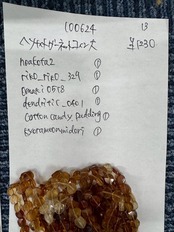 100624 13
ヘソナイトガーネットコイン大 ¥1230
hoakota2 ①
riko_riko_329 ①
pomaki0518 ①
dendritic_0401 ①
cotton candy pudding ①
kyoramonmidori ①